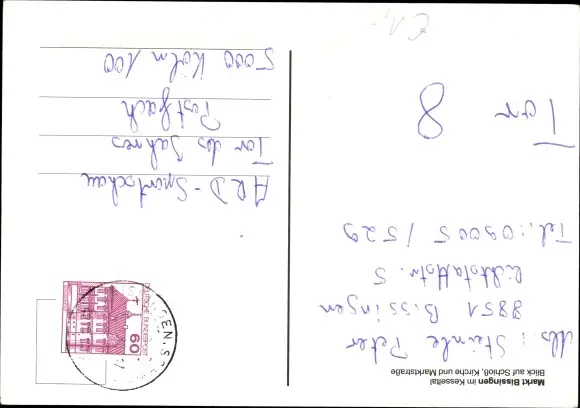 Markt Bissingen im Kesseltal
Blick auf Schloß, Kirche und Marktstraße
Abs: Steinle Peter
8851 Bissingen
Lichtstattstr. 5
Tel.: 09005 / 529
Tor
8
DEUTSCHE BUNDESPOST
60
ARD-Sportschau
Tor des Jahres
Postfach
5000 Köln 100
€ 1,-